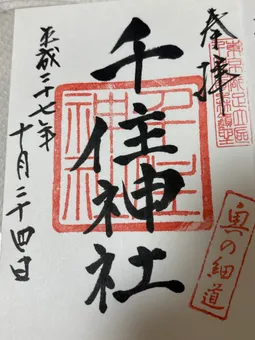 奉拝
千住神社
平成二十七年
十月二十四日
奥の細道
千住
神社